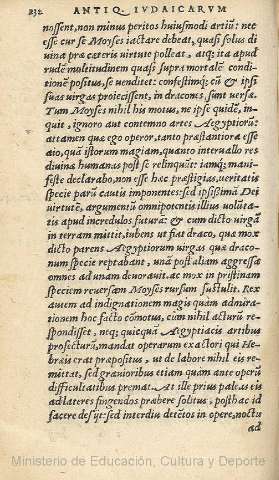 232 ANTIQ. IVDAICARVM
nossent, non minus peritos huiusmodi artiũ: nec
esse cur se Moyses iactare debeat, quasi solus di
uina præ cæteris uirtute polleat, atq; ita apud
rudẽ multitudinem quasi supra mortalẽ condi
tionẽ positus, se uenditet: confestimq; cũ & ipsi
suas uirgas proiecissent, in dracones sunt uersæ.
Tum Moyses nihil his motus, ne ipse quidẽ, in-
quit, ignoro aut contemno artes Aegyptiorũ:
attamen quæ ego operor, tanto præstantiora esse
aio, quã istorum magiam, quanto interuallo res
diuina humanas post se relinquũt: iamq; mani-
feste declarabo, non esse hoc præstigias, ueritatis
specie parũ cautis imponentes: sed ipsißimã Dei
uirtutẽ, argumentũ omnipotentis illius uolũ-
tatis apud incredulos futurã: & cum dicto uirgã
in terram mittit, iubens ut fiat draco, quæ mox
dicto parens Aegyptiorum uirgas quæ draco-
num specie reptabant, unã post aliam aggressa
omnes ad unam deuorauit. ac mox in pristinam
speciem reuersam Moyses rursum sustulit. Rex
autem ad indignationem magis quàm admira-
tionem hoc facto cõmotus, cum nihil acturũ re-
spondisset, neq; quicquã Aegyptiacis artibus
profecturũ, mandat operarum exactori qui He-
bræis erat præpositus, ut de labore nihil eis re-
mittat, sed grauioribus etiam quàm ante operũ
difficultatibus premat. At ille prius paleas eis
ad lateres fingendos præbere solitus, posthac id
facere desijt: sed interdiu detẽtos in opere, noctu
ad
Ministerio de Educación, Cultura y Deporte